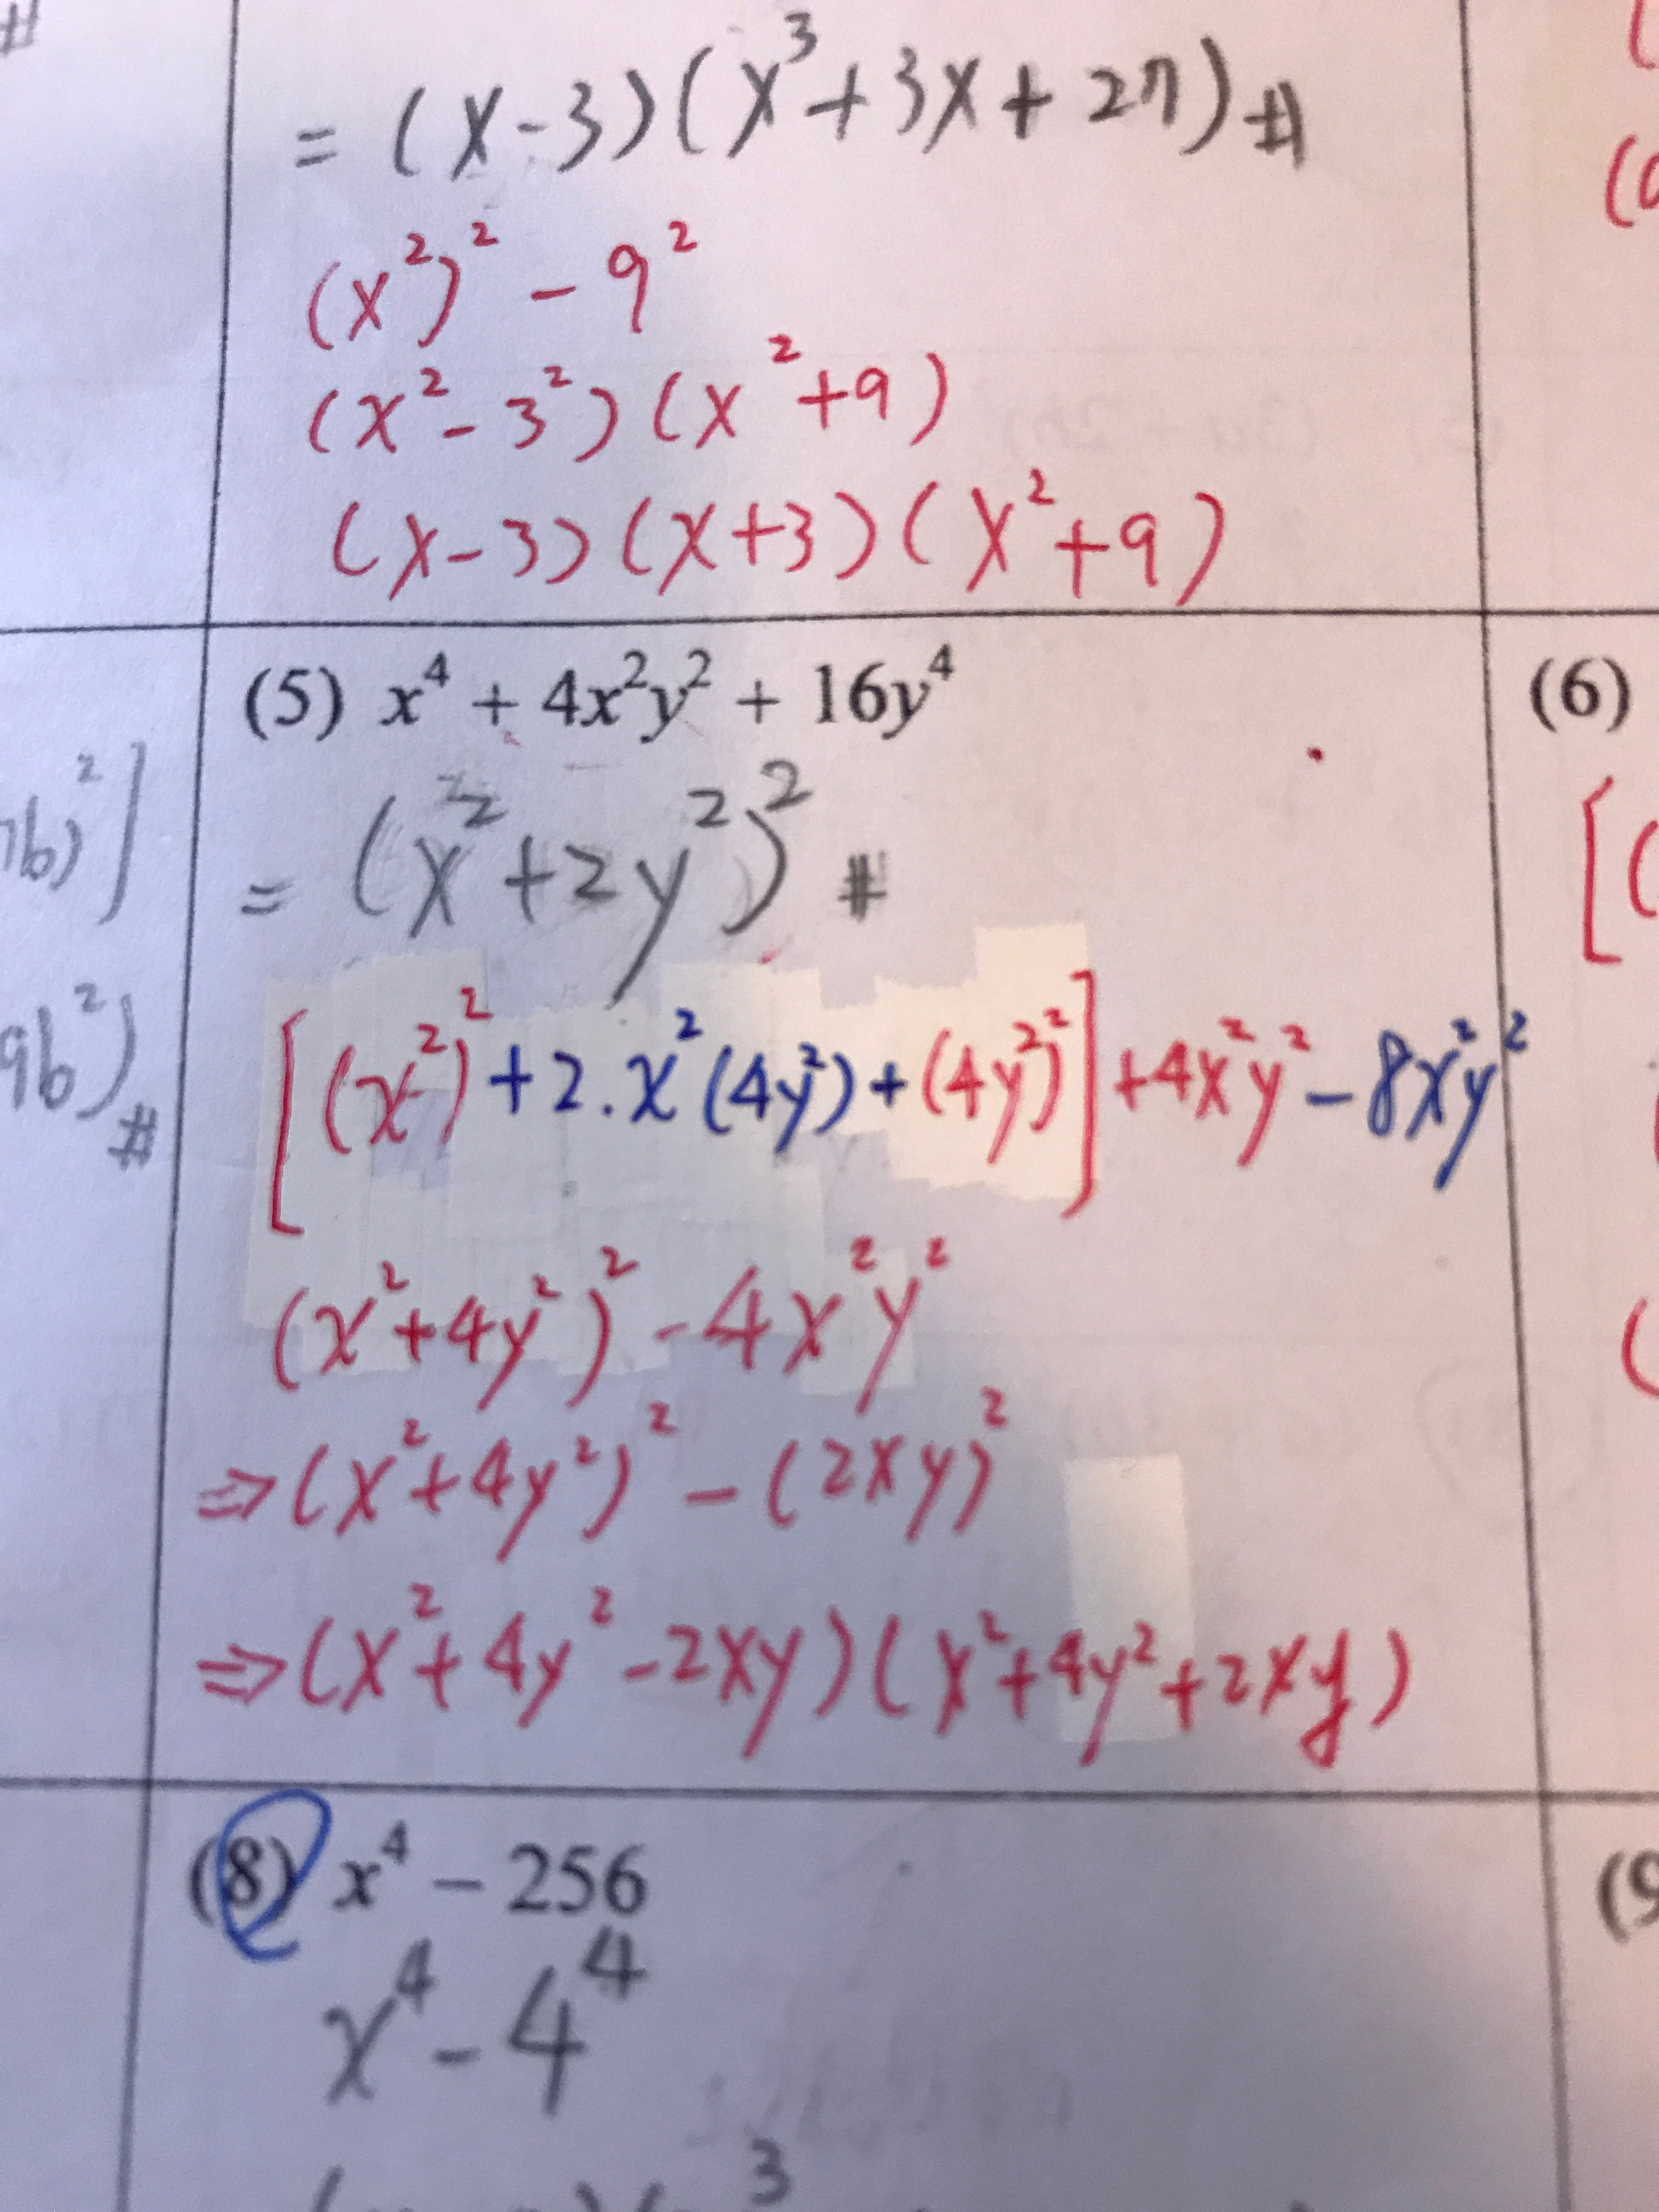 #
= (x-3)(x³+3x+27)#
(x²)² - 9²
(x²-3²)(x²+9)
(x-3)(x+3)(x²+9)
(5) x⁴ + 4x²y² + 16y⁴
(6)
7b)²]
= (x²+2y²)² #
[(
9b²)#
[(x²)²+2.x²(4y²)+(4y²)²]+4x²y²-8x²y²
(x²+4y²)²-4x²y²
⇒(x²+4y²)²-(2xy)²
⇒(x²+4y²-2xy)(x²+4y²+2xy)
(8) x⁴ - 256
(9
x⁴-4⁴
3